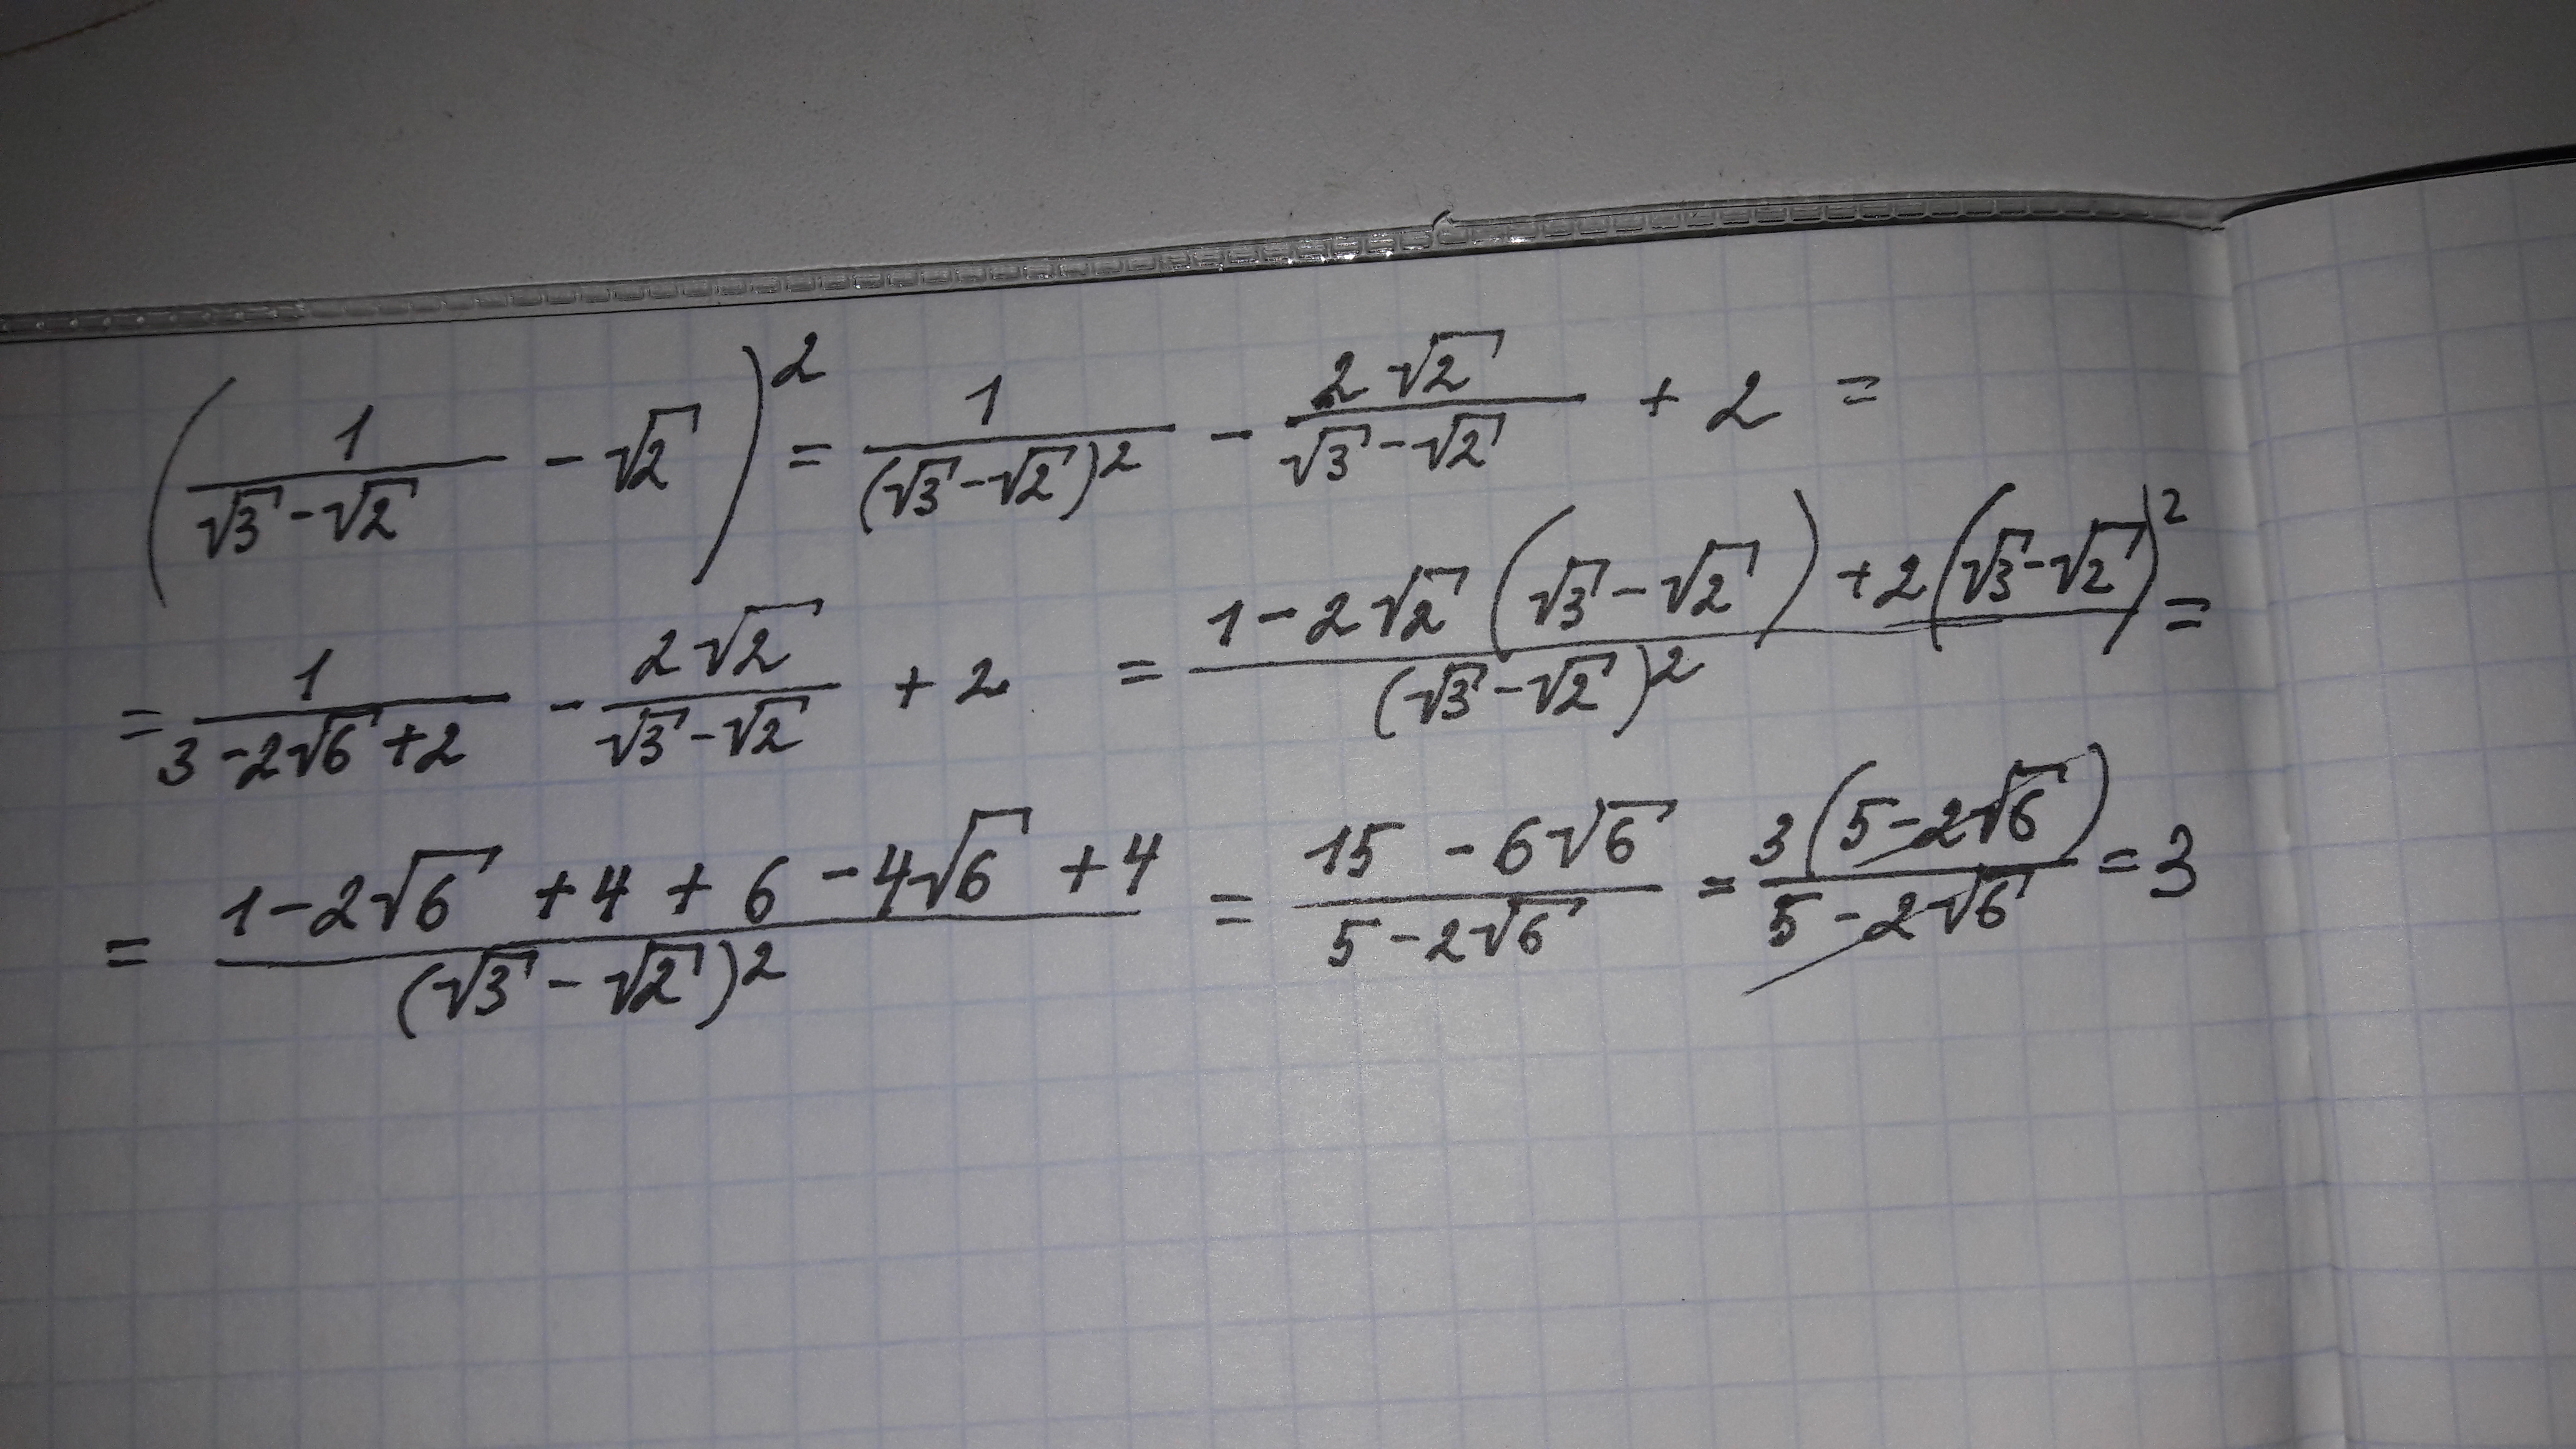 (1/(√3-√2) - √2)² = 1/(√3-√2)² - 2√2/(√3-√2) + 2 =
= 1/(3-2√6+2) - 2√2/(√3-√2) + 2 = (1-2√2(√3-√2)+2(√3-√2)²)/(√3-√2)² =
= (1-2√6+4+6-4√6+4)/(√3-√2)² = (15-6√6)/(5-2√6) = 3(5-2√6)/(5-2√6) = 3